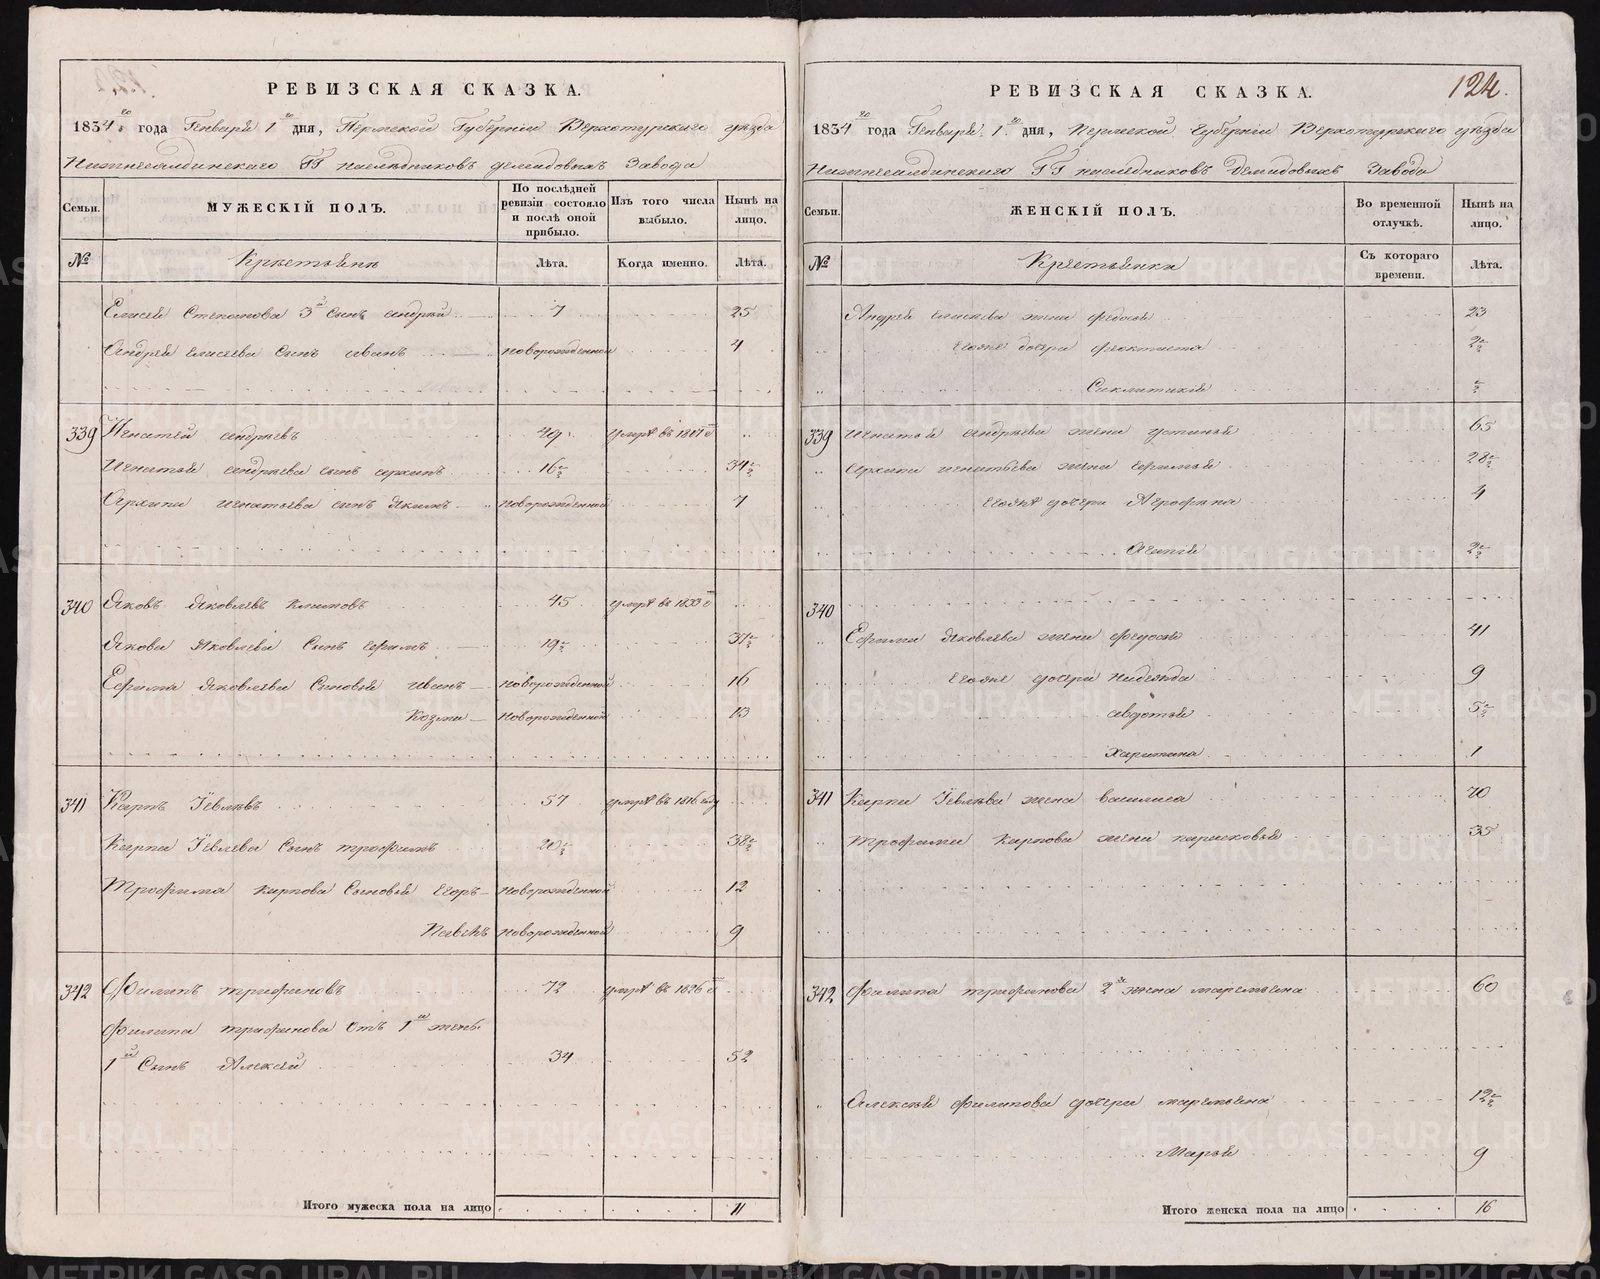 124.
РЕВИЗСКАЯ СКАЗКА.
1834го года Генваря 1го дня, Пермской Губернiи Верхотурскаго уѣзда
Нижнесалдинскаго ГГ наслѣдниковъ Демидовыхъ Завода
Семьи. МУЖЕСКIЙ ПОЛЪ. По послѣдней ревизiи состояло и послѣ оной прибыло. Изъ того числа выбыло. Нынѣ на лицо.
№ Крестьянъ Лѣта. Когда именно. Лѣта.
Елисея Степанова 3й сынъ андрей 7 25
Андрея елисеева сынъ иванъ новорожденной 4
339 Игнатей андреевъ 49 умре въ 1817м г
Игнатья андреева сынъ архипъ 16½ 34½
Архипа игнатьева сынъ якимъ новорожденной 7
340 Яковъ Яковлевъ Климовъ 45 умре въ 1833м г
Якова Яковлева Сынъ ефимъ 19½ 37½
Ефима Яковлева Сыновья иванъ новорожденной 16
Козма новорожденной 13
341 Карпъ Iевлевъ 57 умре въ 1816 году
Карпа Iевлева Сынъ трофимъ 20½ 38½
Трофима карпова Сыновья Егоръ новорожденной 12
Павелъ новорожденной 9
342 Филипъ трифановъ 72 умре въ 1826м г
Филипа трифанова Отъ 1й жены
1й Сынъ Алексей 34 52
Итого мужеска пола на лицо 11
РЕВИЗСКАЯ СКАЗКА.
1834го года Генваря 1го дня, Пермской Губернiи Верхотурскаго уѣзда
Нижнесалдинскаго ГГ наслѣдниковъ Демидовыхъ Завода
Семьи. ЖЕНСКIЙ ПОЛЪ. Во временной отлучкѣ. Нынѣ на лицо.
№ Крестьянки Съ котораго времени. Лѣта.
Андрея елисеева жена федосья 23
Егожъ дочери феоктиста 2½
Секлитикiя ½
339 Игнатья андреева жена устинья 65
Архипа игнатьева жена 28½
Егожъ дочери 4
Агапiя 2½
340
Ефима Яковлева жена федосья 41
Егожъ дочери Надежда 9
авдотья 5½
Харитина 1
341 Карпа Iевлева жена василиса 70
Трофима Карпова жена парасковья 35
342 Филипа трифанова 2я жена маремьяна 60
Алексея филипова дочери маремьяна 12½
Марья 9
Итого женска пола на лицо 16
METRIKI.GASO-URAL.RU